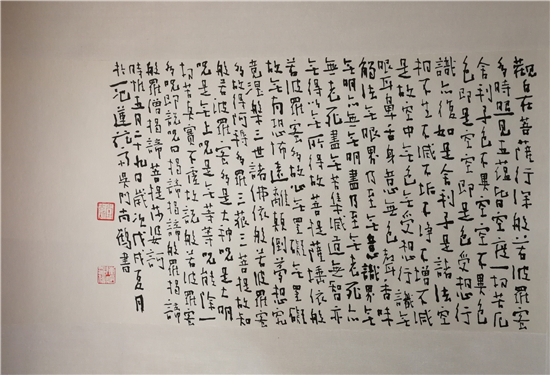 觀自在菩薩行深般若波羅蜜
多時照見五蘊皆空度一切苦厄
舍利子色不異空空不異色
色即是空空即是色受想行
識亦復如是舍利子是諸法空
相不生不滅不垢不淨不增不減
是故空中無色無受想行識無
眼耳鼻舌身意無色聲香味
觸法無眼界乃至無意識界無
無明亦無無明盡乃至無老死亦
無老死盡無苦集滅道無智亦
無得以無所得故菩提薩埵依般
若波羅蜜多故心無罣礙無罣礙
故無有恐怖遠離顛倒夢想究
竟涅槃三世諸佛依般若波羅蜜
多故得阿耨多羅三藐三菩提故知
般若波羅蜜多是大神咒是大明
咒是無上咒是無等等咒能除一
切苦真實不虛故說般若波羅蜜
多咒即說咒曰揭諦揭諦般羅揭諦
般羅僧揭諦菩提莎婆訶
時五月二十九日歲次戊戌夏月
於泥蓮花吳門尚書